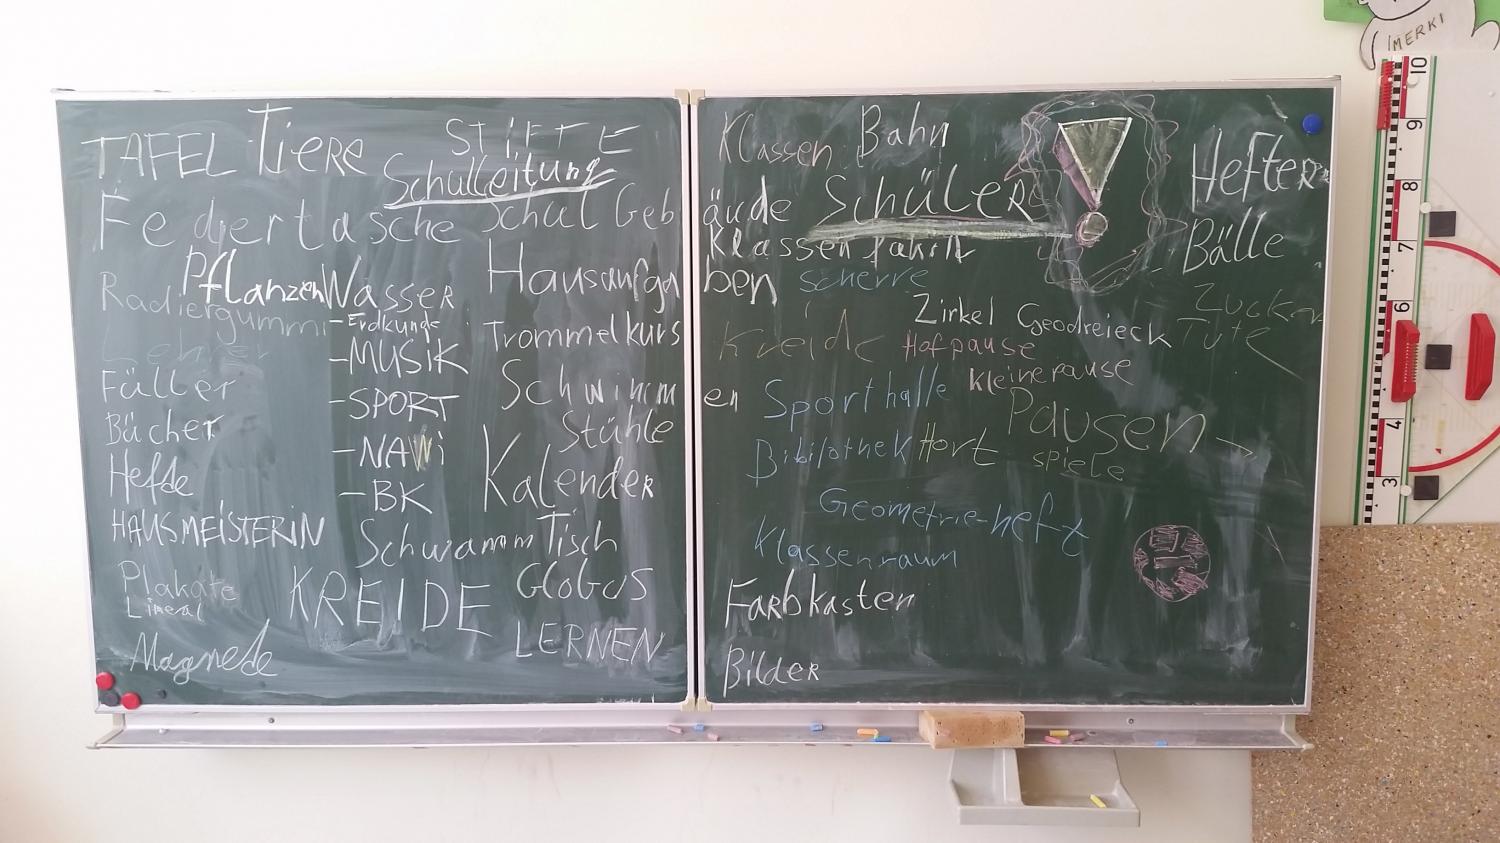 TAFEL Tiere STIFTE
Schulleitung
Federtasche Schul Gebäude
Pflanzen Wasser Hausaufgaben
Radiergummi
- Erdkunde
Trommelkurs
Lehrer
- MUSIK
Füller
- SPORT
Schwimmen
Bücher
- NAWi
Stühle
Hefde
- BK
Kalender
HAUSMEISTERIN
Schwamm Tisch
Plakate
Lineal
KREIDE
Globus
LERNEN
Magnede
Klassen Bahn
Schüler !
Hefter
Klassenfahrt
Bälle
scherre
Zucker
Tüte
Zirkel Geodreieck
Kreide
Hofpause
kleinepause
Sporthalle
Pausen
spiele
Bibilothek
Hort
Geometrie-heft
Klassenraum
Farbkasten
Bilder
MERKI
10
9
8
7
6
4
3